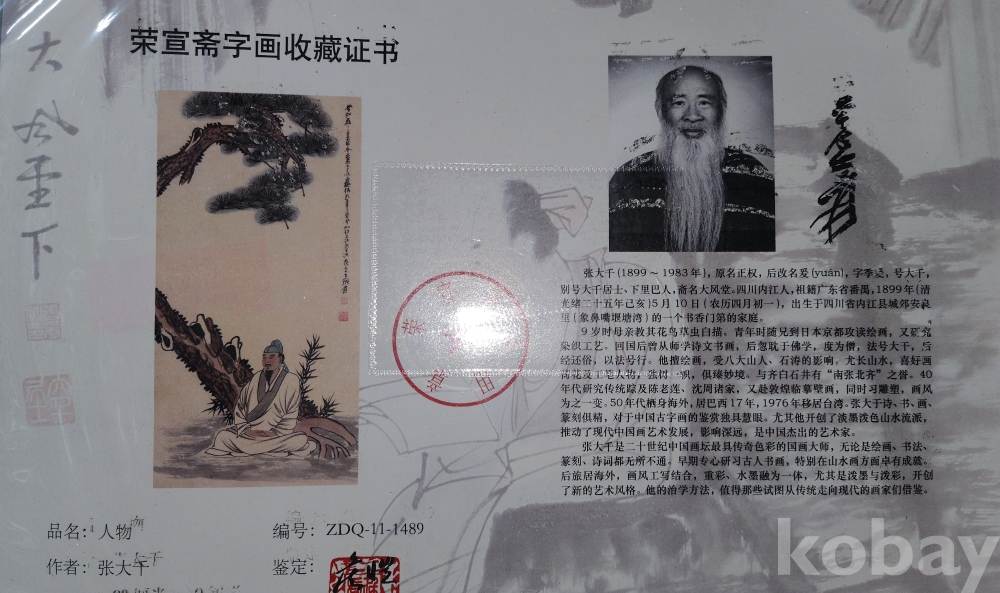 荣宣斋字画收藏证书
大风堂下
张大千(1899～1983年)，原名正权，后改名爰(yuán)，字季爰，号大千，
别号大千居士、下里巴人，斋名大风堂。四川内江人，祖籍广东省番禺，1899年(清
光绪二十五年己亥)5月10日(农历四月初一)，出生于四川省内江县城郊安良
里(象鼻嘴堰塘湾)的一个书香门第的家庭。
9岁时母亲教其花鸟草虫白描。青年时随兄到日本京都攻读绘画，又研究
染织工艺。回国后曾从师学诗文书画，后忽耽于佛学，度为僧，法号大千，后
经还俗，以法号行。他擅绘画，受八大山人、石涛的影响。尤长山水，喜好画
俱臻妙境。与齐白石并有“南张北齐”之誉。40
年代研究传统踪及陈老莲、沈周诸家，又赴敦煌临摹壁画，同时习雕塑，画风
为之一变。50年代栖身海外，居巴西17年，1976年移居台湾。张大千于诗、书、画、
篆刻俱精，对于中国古字画的鉴赏独具慧眼。尤其他开创了淡墨泼色山水流派，
推动了现代中国画艺术发展，影响深远，是中国杰出的艺术家。
张大千是二十世纪中国画坛最具传奇色彩的国画大师，无论是绘画、书法、
篆刻、诗词都无所不通。早期专心研习古人书画，特别在山水画方面卓有成就。
后旅居海外，画风工写结合，重彩、水墨融为一体，尤其是泼墨与泼彩，开创
了新的艺术风格。他的治学方法，值得那些试图从传统走向现代的画家们借鉴。
品名：人物
编号：ZDQ-11-1489
作者：张大千
鉴定：
kobay